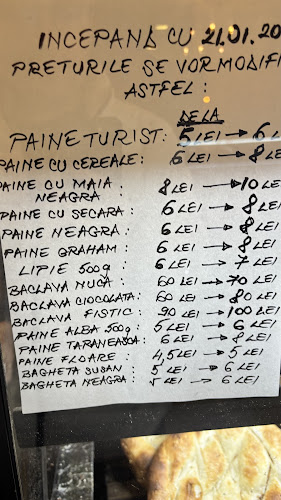 INCEPAND CU 21.01.20
PRETURILE SE VOR MODIFI
ASTFEL :
DE LA
PAINE TURIST: 5 LEI → 6
PAINE CU CEREALE: 6 LEI → 8 LEI
PAINE CU MAIA NEAGRA : 8 LEI → 10 LEI
PAINE CU SECARA : 6 LEI → 8 LE
PAINE NEAGRA : 6 LEI → 8 LEI
PAINE GRAHAM : 6 LEI → 8 LEI
LIPIE 500g : 6 LEI → 7 LEI
BACLAVA NUCA : 60 LEI → 70 LEI
BACLAVA CIOCOLATA : 60 LEI → 80 LEI
BACLAVA FISTIC : 90 LEI → 100 LEI
PAINE ALBA 500g : 5 LEI → 6 LEI
PAINE TARANEASCA : 6 LEI → 8 LEI
PAINE FLOARE : 4,5 LEI → 5 LEI
BAGHETA SUSAN : 5 LEI → 6 LEI
BAGHETA NEAGRA : 5 LEI → 6 LEI